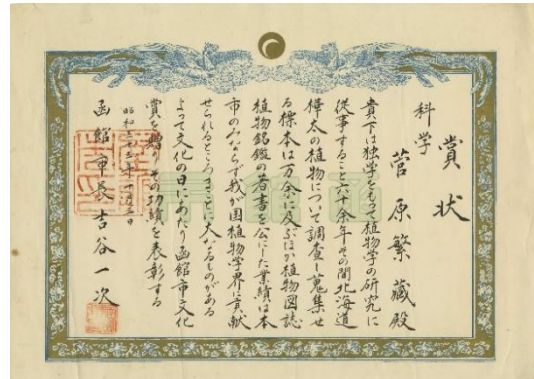 賞状
科学
菅原繁蔵殿
貴下は独学をもって植物学の研究に
従事すること六十余年その間北海道
樺太の植物について調査し蒐集せ
る標本は万余に及ぶほか植物図誌
植物銘鑑の著書を公にした業績は本
市のみならず我が国植物学界に貢献
せられるところまことに大なるものがある
よって文化の日にあたり函館市文化
賞を贈りその功績を表彰する
昭和三十三年十一月三日
函館市長 吉谷一次